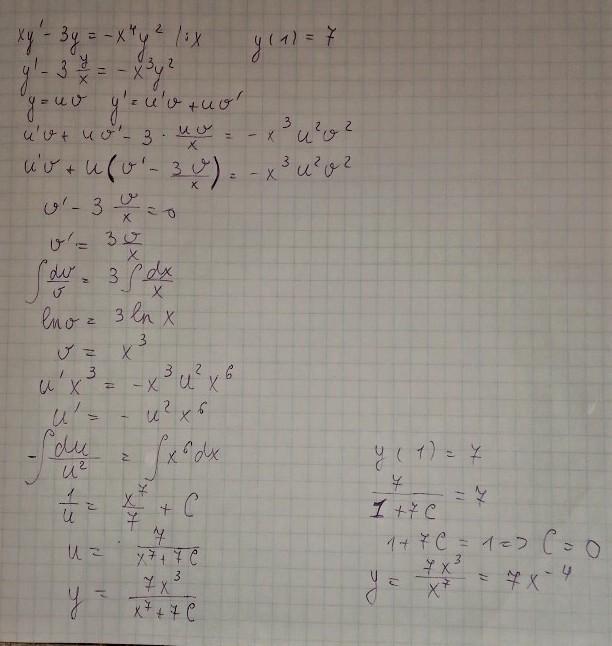 xy' - 3y = -x⁴y² /:x y(1) = 7
y' - 3 y/x = -x³y²
y = uv y' = u'v + uv'
u'v + uv' - 3 · uv/x = -x³u²v²
u'v + u(v' - 3v/x) = -x³u²v²
v' - 3 v/x = 0
v' = 3v/x
∫ dv/v = 3 ∫ dx/x
ln v = 3 ln x
v = x³
u'x³ = -x³u²x⁶
u' = -u²x⁶
-∫ du/u² = ∫ x⁶dx
1/u = x⁷/7 + C
u = 7/(x⁷+7C)
y = 7x³/(x⁷+7C)
y(1) = 7
7/(1+7C) = 7
1+7C = 1 => C = 0
y = 7x³/x⁷ = 7x⁻⁴